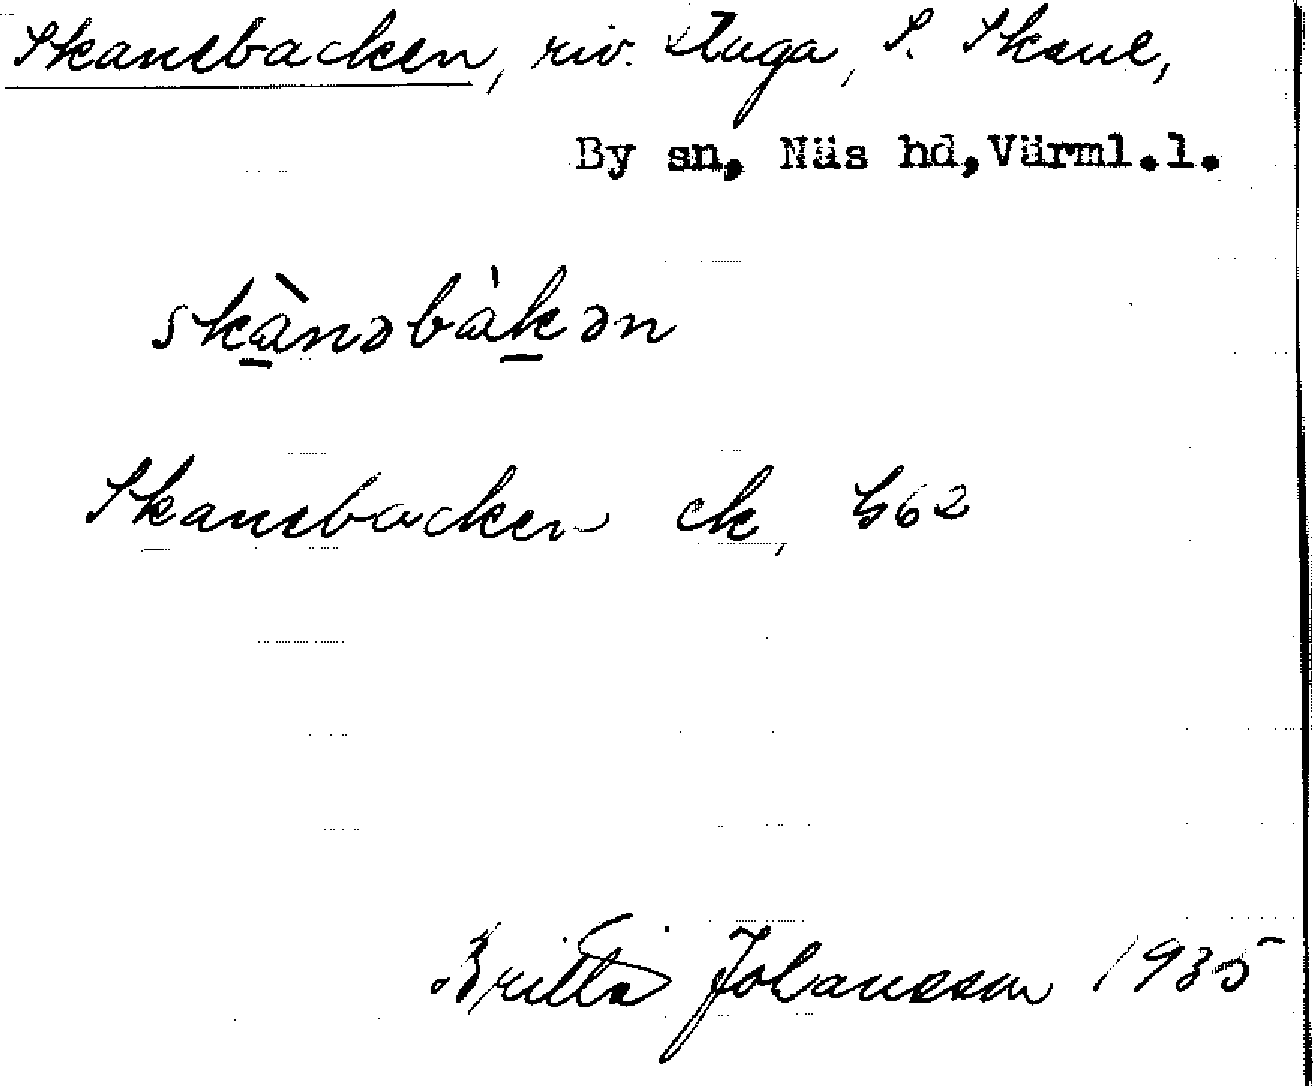 Skanebacken, riv. stuga, S. Skane,
By sn, Näs hd,Värml.l.
skànəbàkən
Skanebacken ek, h62
Britta Johansson 1935